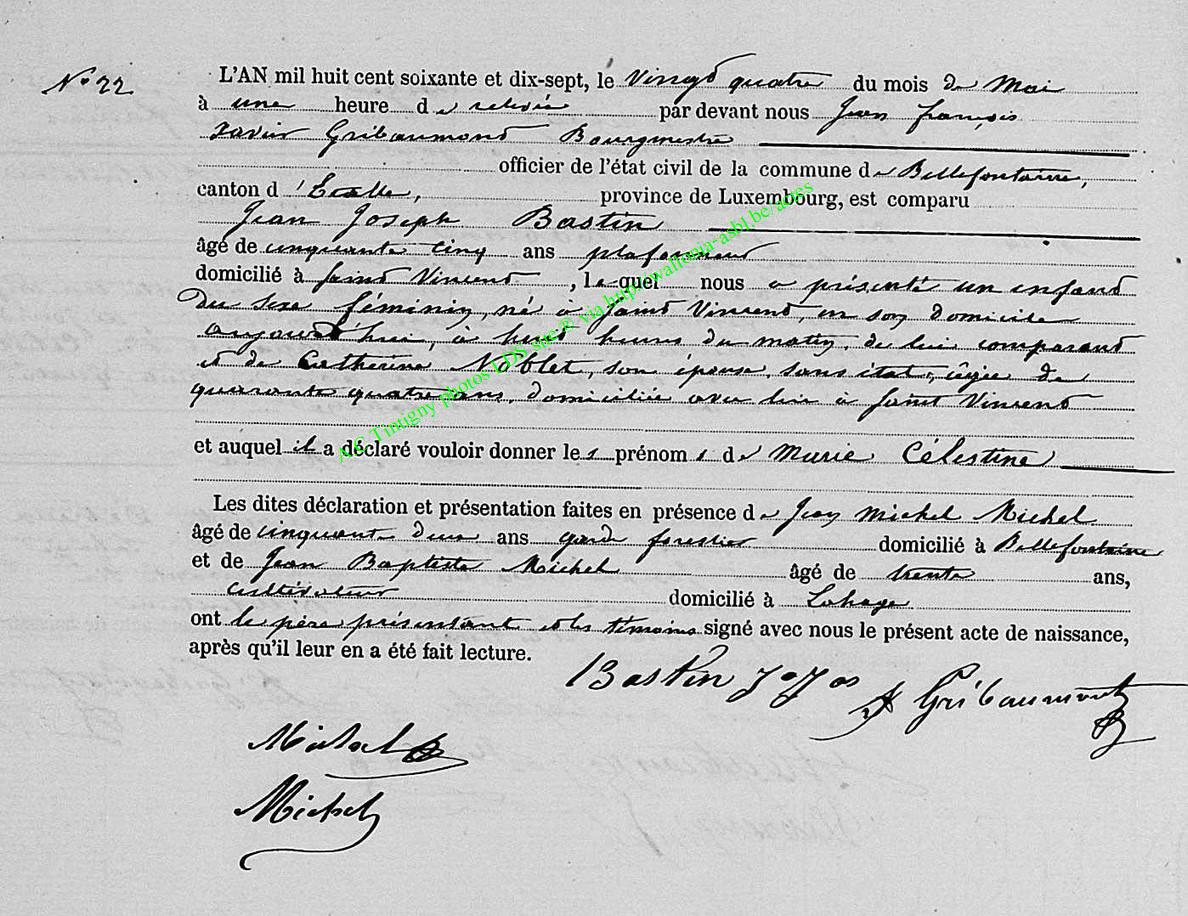 N° 22
L'AN mil huit cent soixante et dix-sept, le vingt quatre du mois de Mai
à une heure de relevée par devant nous Jean françois
Xavier Gribaumont Bourgmestre
officier de l'état civil de la commune de Bellefontaine,
canton d'Etalle, province de Luxembourg, est comparu
Jean Joseph Bastin
âgé de cinquante cinq ans plafonneur
domicilié à Saint Vincent, lequel nous a présenté un enfant
du sexe féminin, né à Saint Vincent, en son domicile
aujourd'hui, à huit heures du matin, de lui comparant
et de Catherine Noblet, son épouse, sans état, agée de
quarante quatre ans, domiciliée avec lui à Saint Vincent
et auquel il a déclaré vouloir donner les prénoms de Marie Célestine
Les dites déclaration et présentation faites en présence de Jean Michel Michel
âgé de cinquante deux ans garde forestier domicilié à Bellefontaine
et de Jean Baptiste Michel âgé de trente ans,
cultivateur domicilié à Lahage
ont le père présentant et les témoins signé avec nous le présent acte de naissance,
après qu'il leur en a été fait lecture.
Bastin J Jos
Gribaumont
Michel
Michel
AC Tintigny photos LDS site © via http://wallonia-asbl.be/actes